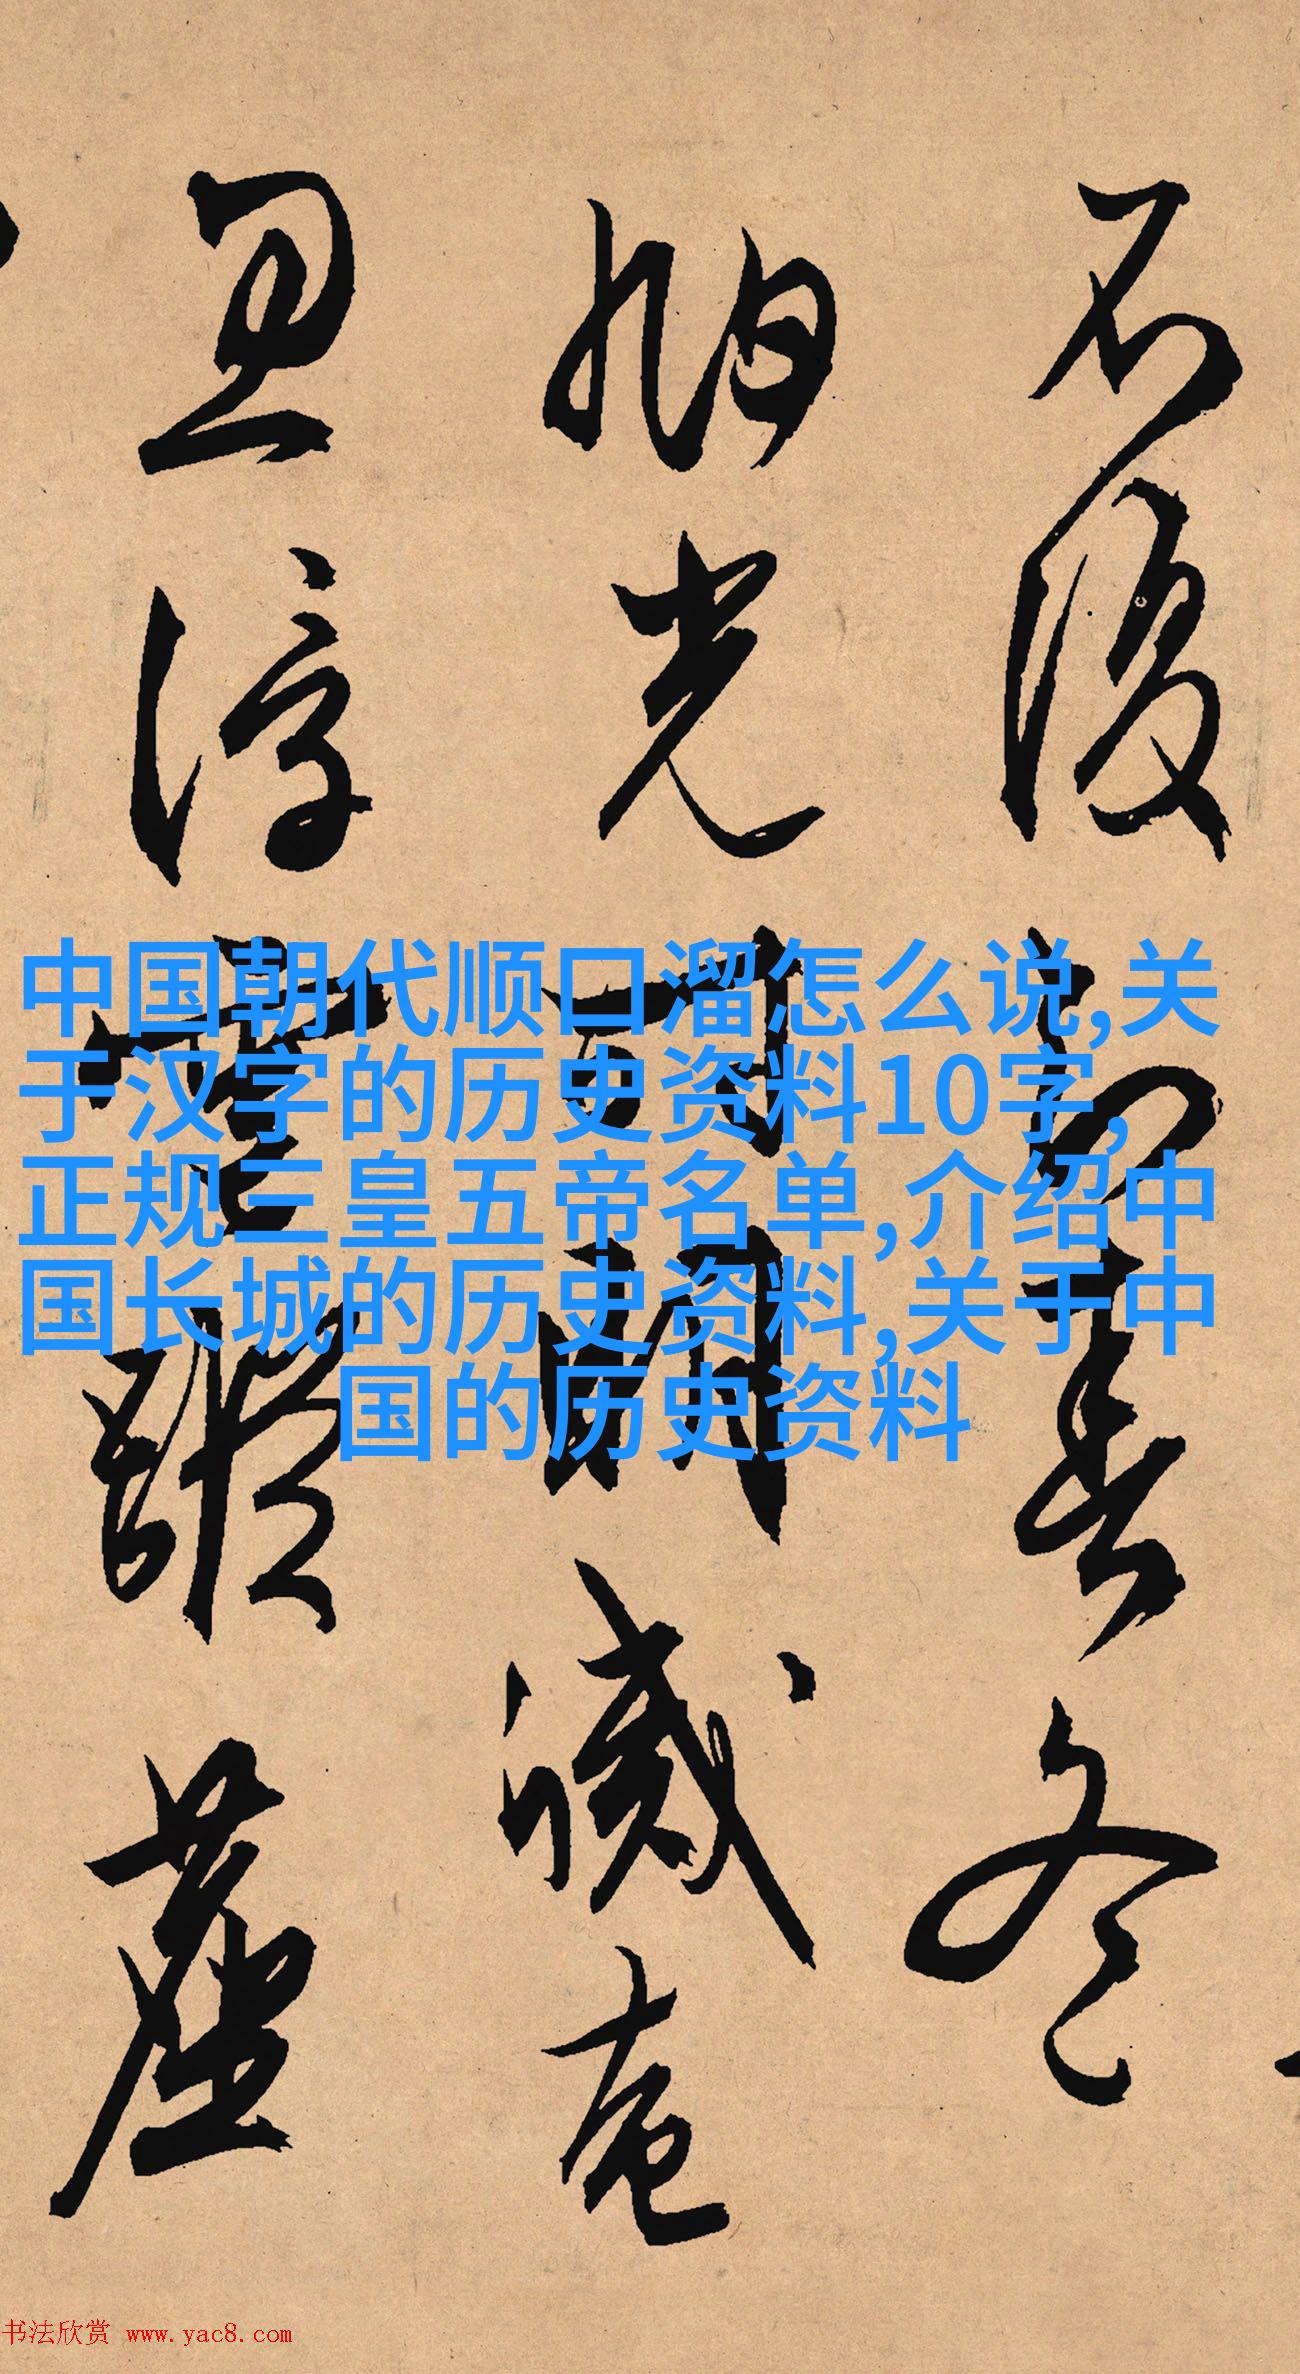 不復知春冬
光明滅奄
忽
中国朝代顺口溜怎么说,关
于汉字的历史资料10字,
正规三皇五帝名单,介绍中
国长城的历史资料,关于中
国的历史资料
书法欣赏 www.yac8.com